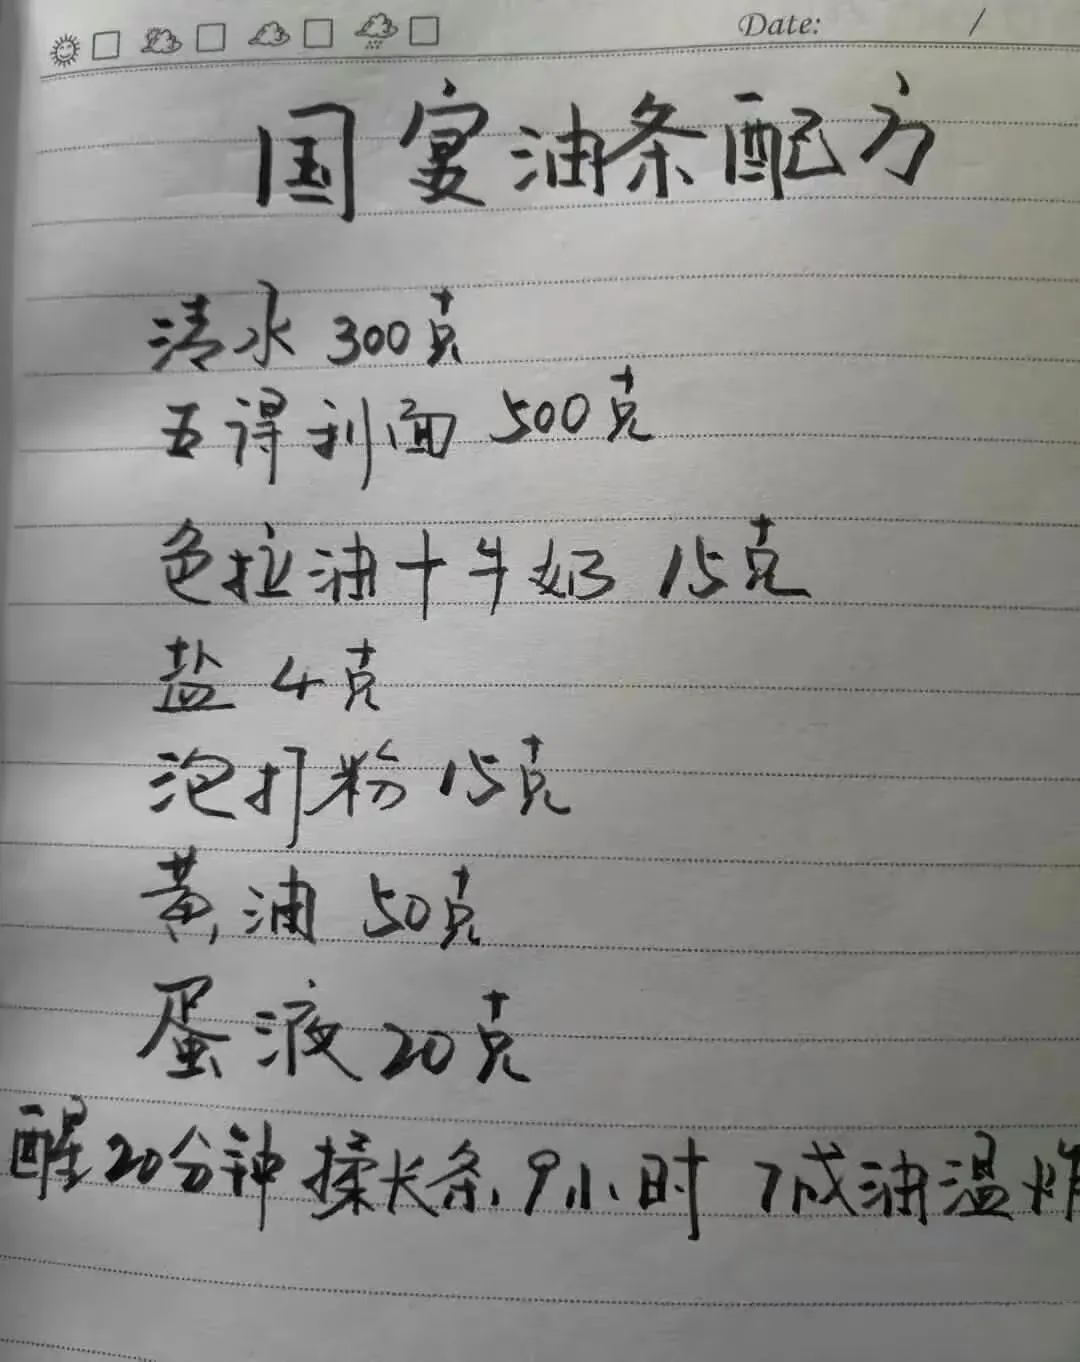 Date: /
国宴油条配方
清水 300克
五得利面 500克
色拉油十牛奶 15克
盐 4克
泡打粉 15克
黄油 50克
蛋液 20克
醒20分钟 揉长条,9小时 7成油温炸